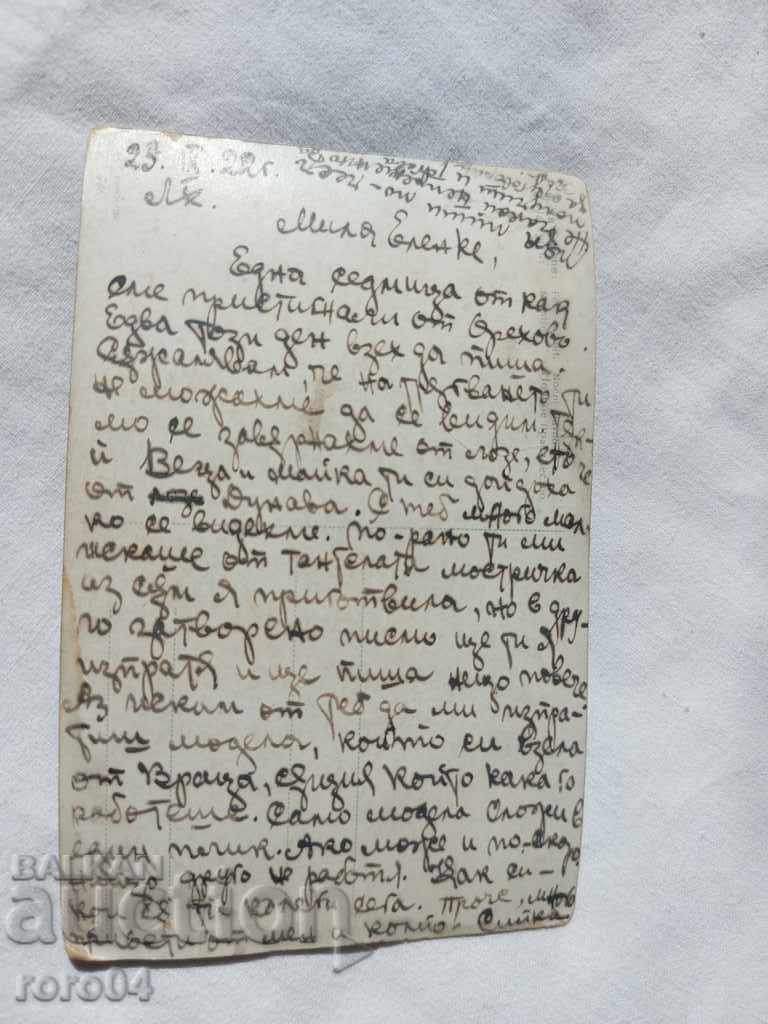 23. IX. 22 г.
Лж.
Мила Еленке,
Една седмица откад
сме пристигнали от Орехово.
Едва този ден взех да пиша.
Съжалявам, че на тръгването ти
не можахме да се видим. Тък-
мо се завърнахме от лозе, ето че
и Веца и майка ти си дойдоха
от Дунава. С теб много мал-
ко се видехме. По-рано ти ми
искаше от тантелата мостричка
из съм я приготвила, но в дру-
го затворено писмо ще ти я
изпратя и ще пиша нещо повече
Аз искам от теб да ми изпра-
тиш модела, който си взела
от Враца, същия който кака го
работеше. Само модела сложи в
един плик. Ако може и по-скоро,
нищо друго не работя. Пак си-
кои са ти колети сега. Проче, много
привети от мен и
BALKAN
auction
roro04